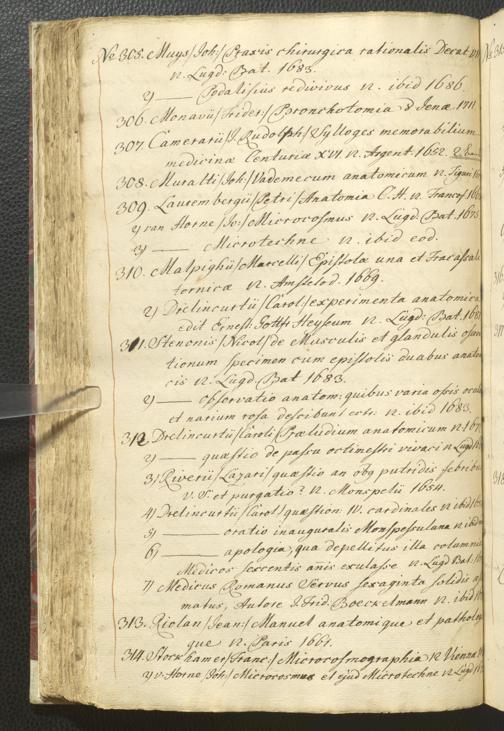 No 305. Muys/Joh:/Praxis chirurgica rationalis Decat.
12. Lugd: Bat. 1683.
2) —— Podalisius redivivus 12. ibid 1686.
306. Monavii/Frider:/Bronchotomia 8 Jenæ 1711
307. Camerarii/J. Rudolph/Sylloges memorabilium
medicinæ Centuriæ XVI 12. Argent. 1652.
308. Muralti/Joh:/Vademecum anatomicum 12. Tiguri
309. Laurembergii/Petri/Anatomia C. H. 12. Francof
2) van Horne/Jo:/Microcosmus 12. Lugd. Bat. 1675
3) —— Microtechne 12. ibid eod.
310. Malpighii/Marcelli/Epistolæ una et Fracassati
12. Amstelod. 1669.
2) Drelincurtii/Carol:/experimenta anatomica
edit Ernest. Gottfr Heyseum 12. Lugd: Bat. 168
311. Stenonis/Nicol/de Musculis et glandulis obser
tionum specimen cum epistolis duabus anato
cis 12. Lugd. Bat 1683.
2) —— observatio anatom: quibus varia oris ocul
et narium vasa describuntur 12. ibid 1683.
312. Drelincurtii/Caroli/Præludium anatomicum 12 167
2) —— quæstio de partu octimestri vivaci 12 Lugd
3) Riverii/Lazari/quæstio an obg putridis febribus
v. S. et purgatio? 12. Monspelii 1654.
4) Drelincurtii/Carol/quæstion: IV. cardinales 12 ibid
5) —— oratio inauguralis Monspessulana 12 ibid
6) —— apologia, qua depellitur illa calumnia
Medicos sexcentis annis exulasse 12. Lugd Bat:
7) Medicus Romanus servus sexaginta solidis æs
matus, Autore J. Frid. Boeckelmann 12. ibid
313. Riolan/Jean:/Manuel anatomique et patholo
que 12. Paris 1661.
314. Stockhamer/Franc:/Microcosmographia 12 Viennæ
2) v. Horne/Joh:/Microcosmus et ejusd Microtechne 12 Lugd